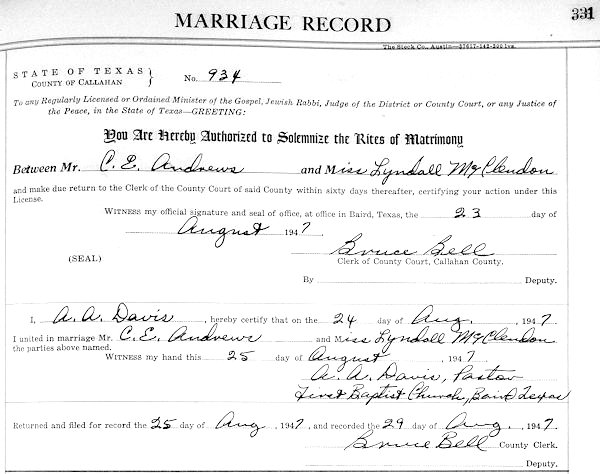 331
MARRIAGE RECORD
The Steck Co., Austin—37617-142-200 lvs.
STATE OF TEXAS }
COUNTY OF CALLAHAN } No. 934
To any Regularly Licensed or Ordained Minister of the Gospel, Jewish Rabbi, Judge of the District or County Court, or any Justice of
the Peace, in the State of Texas—GREETING:
You Are Hereby Authorized to Solemnize the Rites of Matrimony
Between Mr. C. E. Andrews and Miss Lyndall McClendon
and make due return to the Clerk of the County Court of said County within sixty days thereafter, certifying your action under this
License.
WITNESS my official signature and seal of office, at office in Baird, Texas, the 23 day of
August 1947
Bruce Bell
(SEAL) Clerk of County Court, Callahan County.
By Deputy.
I, A. A. Davis, hereby certify that on the 24 day of Aug. , 1947
I united in marriage Mr. C. E. Andrews and Miss Lyndall McClendon
the parties above named.
WITNESS my hand this 25 day of August , 1947
A. A. Davis, Pastor
First Baptist Church, Baird Texas
Returned and filed for record the 25 day of Aug , 1947, and recorded the 29 day of Aug. , 1947
Bruce Bell County Clerk.
Deputy.